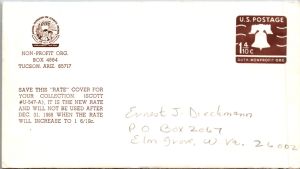 NON-PROFIT ORG.
BOX 4664
TUCSON, ARIZ. 85717
U.S. POSTAGE
1.4
10¢
AUTH NONPROFIT ORG
SAVE THIS "RATE" COVER FOR
YOUR COLLECTION. (SCOTT
#U-547-A), IT IS THE NEW RATE
AND WILL NOT BE USED AFTER
DEC. 31, 1968 WHEN THE RATE
WILL INCREASE TO 1 6/10c.
Ernest J Dieckmann
P O Box 2067
Elm Grove, W Va. 26002